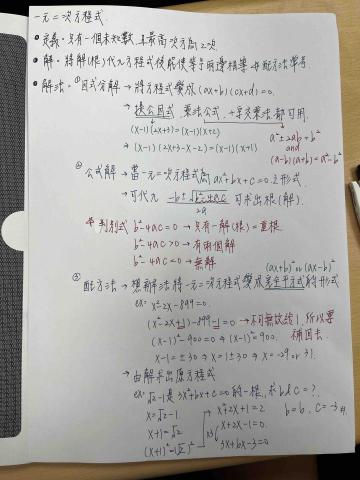 一元二次方程式
• 定義:只有一個未知數,且最高次方為2次.
• 解:將解(根)代入方程式後能使等號兩邊相等
• 解法:①因式分解 → 將方程式變成(ax+b)(cx+d)=0.
→ 提公因式、乘法公式、十字交乘法都可用.
(x-1)(2x+3)=(x-1)(x+2)
→ (x-1)(2x+3-x-2)=(x-1)(x+1)
a²±2ab+b²
and
(a-b)(a+b)=a²-b²
②公式解 → 當一元二次方程式為ax²+bx+c=0之形式
→ 可代入 -b±√b²-4ac / 2a 可求出根(解).
判別式 b²-4ac=0 → 只有一解(根)=重根
b²-4ac>0 → 有兩個解
b²-4ac<0 → 無解
(ax+b)² or (ax-b)²
③配方法 → 將一元二次方程式變成完全平方式的形式
ex: x²-2x-899=0.
(x²-2x+1)-899-1=0 → 不可無故給1,所以要補回去.
(x-1)²-900=0 → (x-1)²=900.
x-1=±30 → x=1±30 → x=-29 or 31.
→ 由解求出原方程式
ex: √2-1是3x²+bx+c=0的一根,求b.c=?
x=√2-1.
x+1=√2
(x+1)²=(√2)²
x²+2x+1=2.
x²+2x-1=0.
×3
3x²+6x-3=0
b=6, c=-3